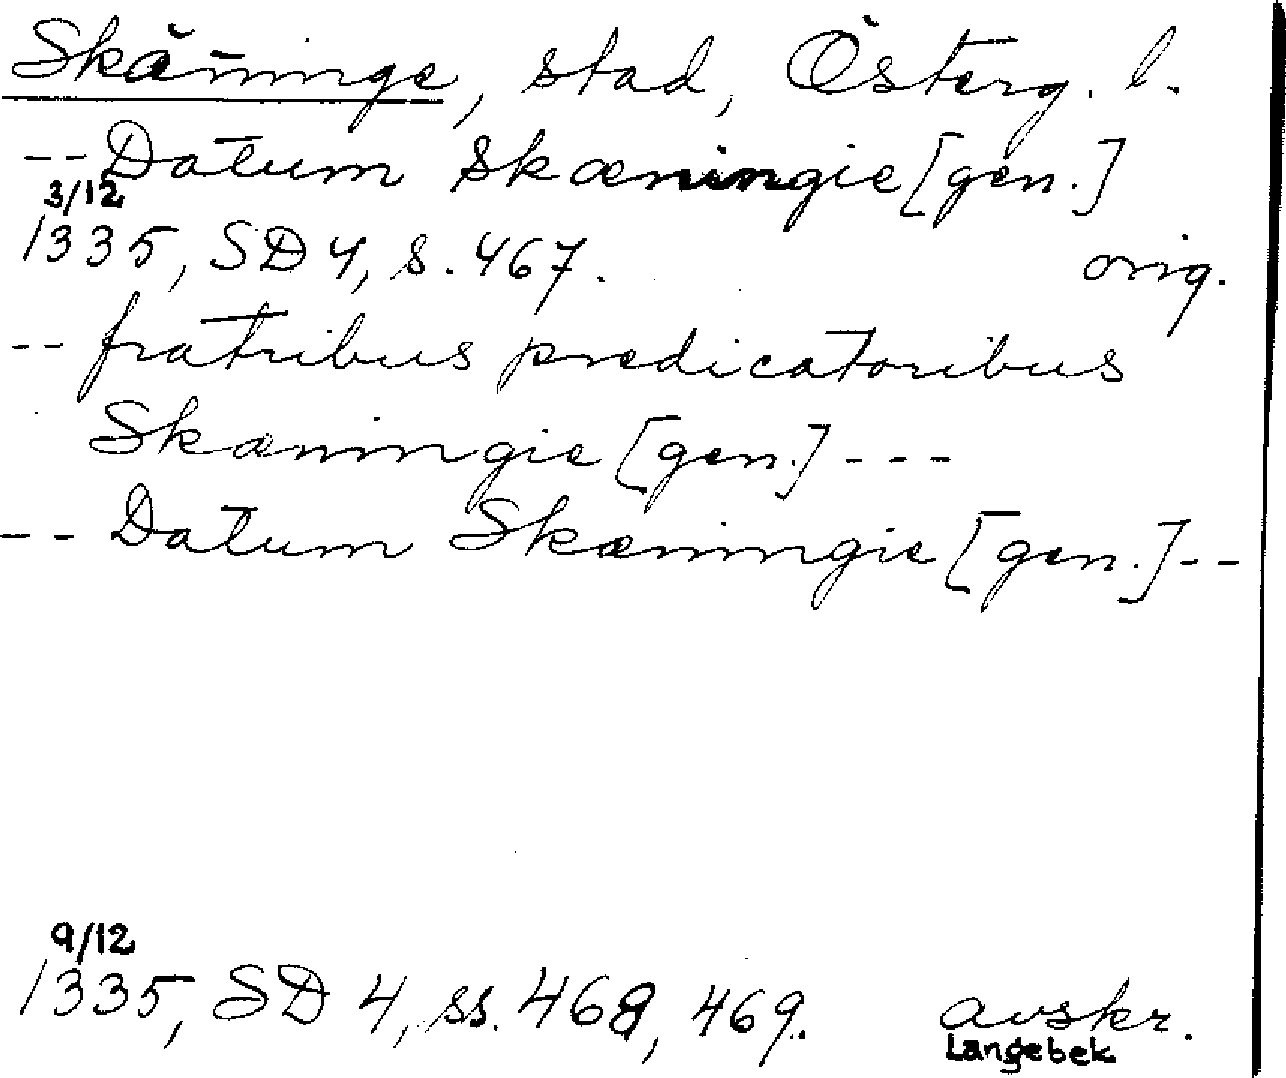 Skänninge, stad, Österg. l.
-- Datum Skæningie [gen.]
3/12
1335, SD 4, s. 467. orig.
-- fratribus predicatoribus
Skæningie [gen.] ---
-- Datum Skæningie [gen.] --
9/12
1335, SD 4, ss. 468, 469. avskr.
Langebek